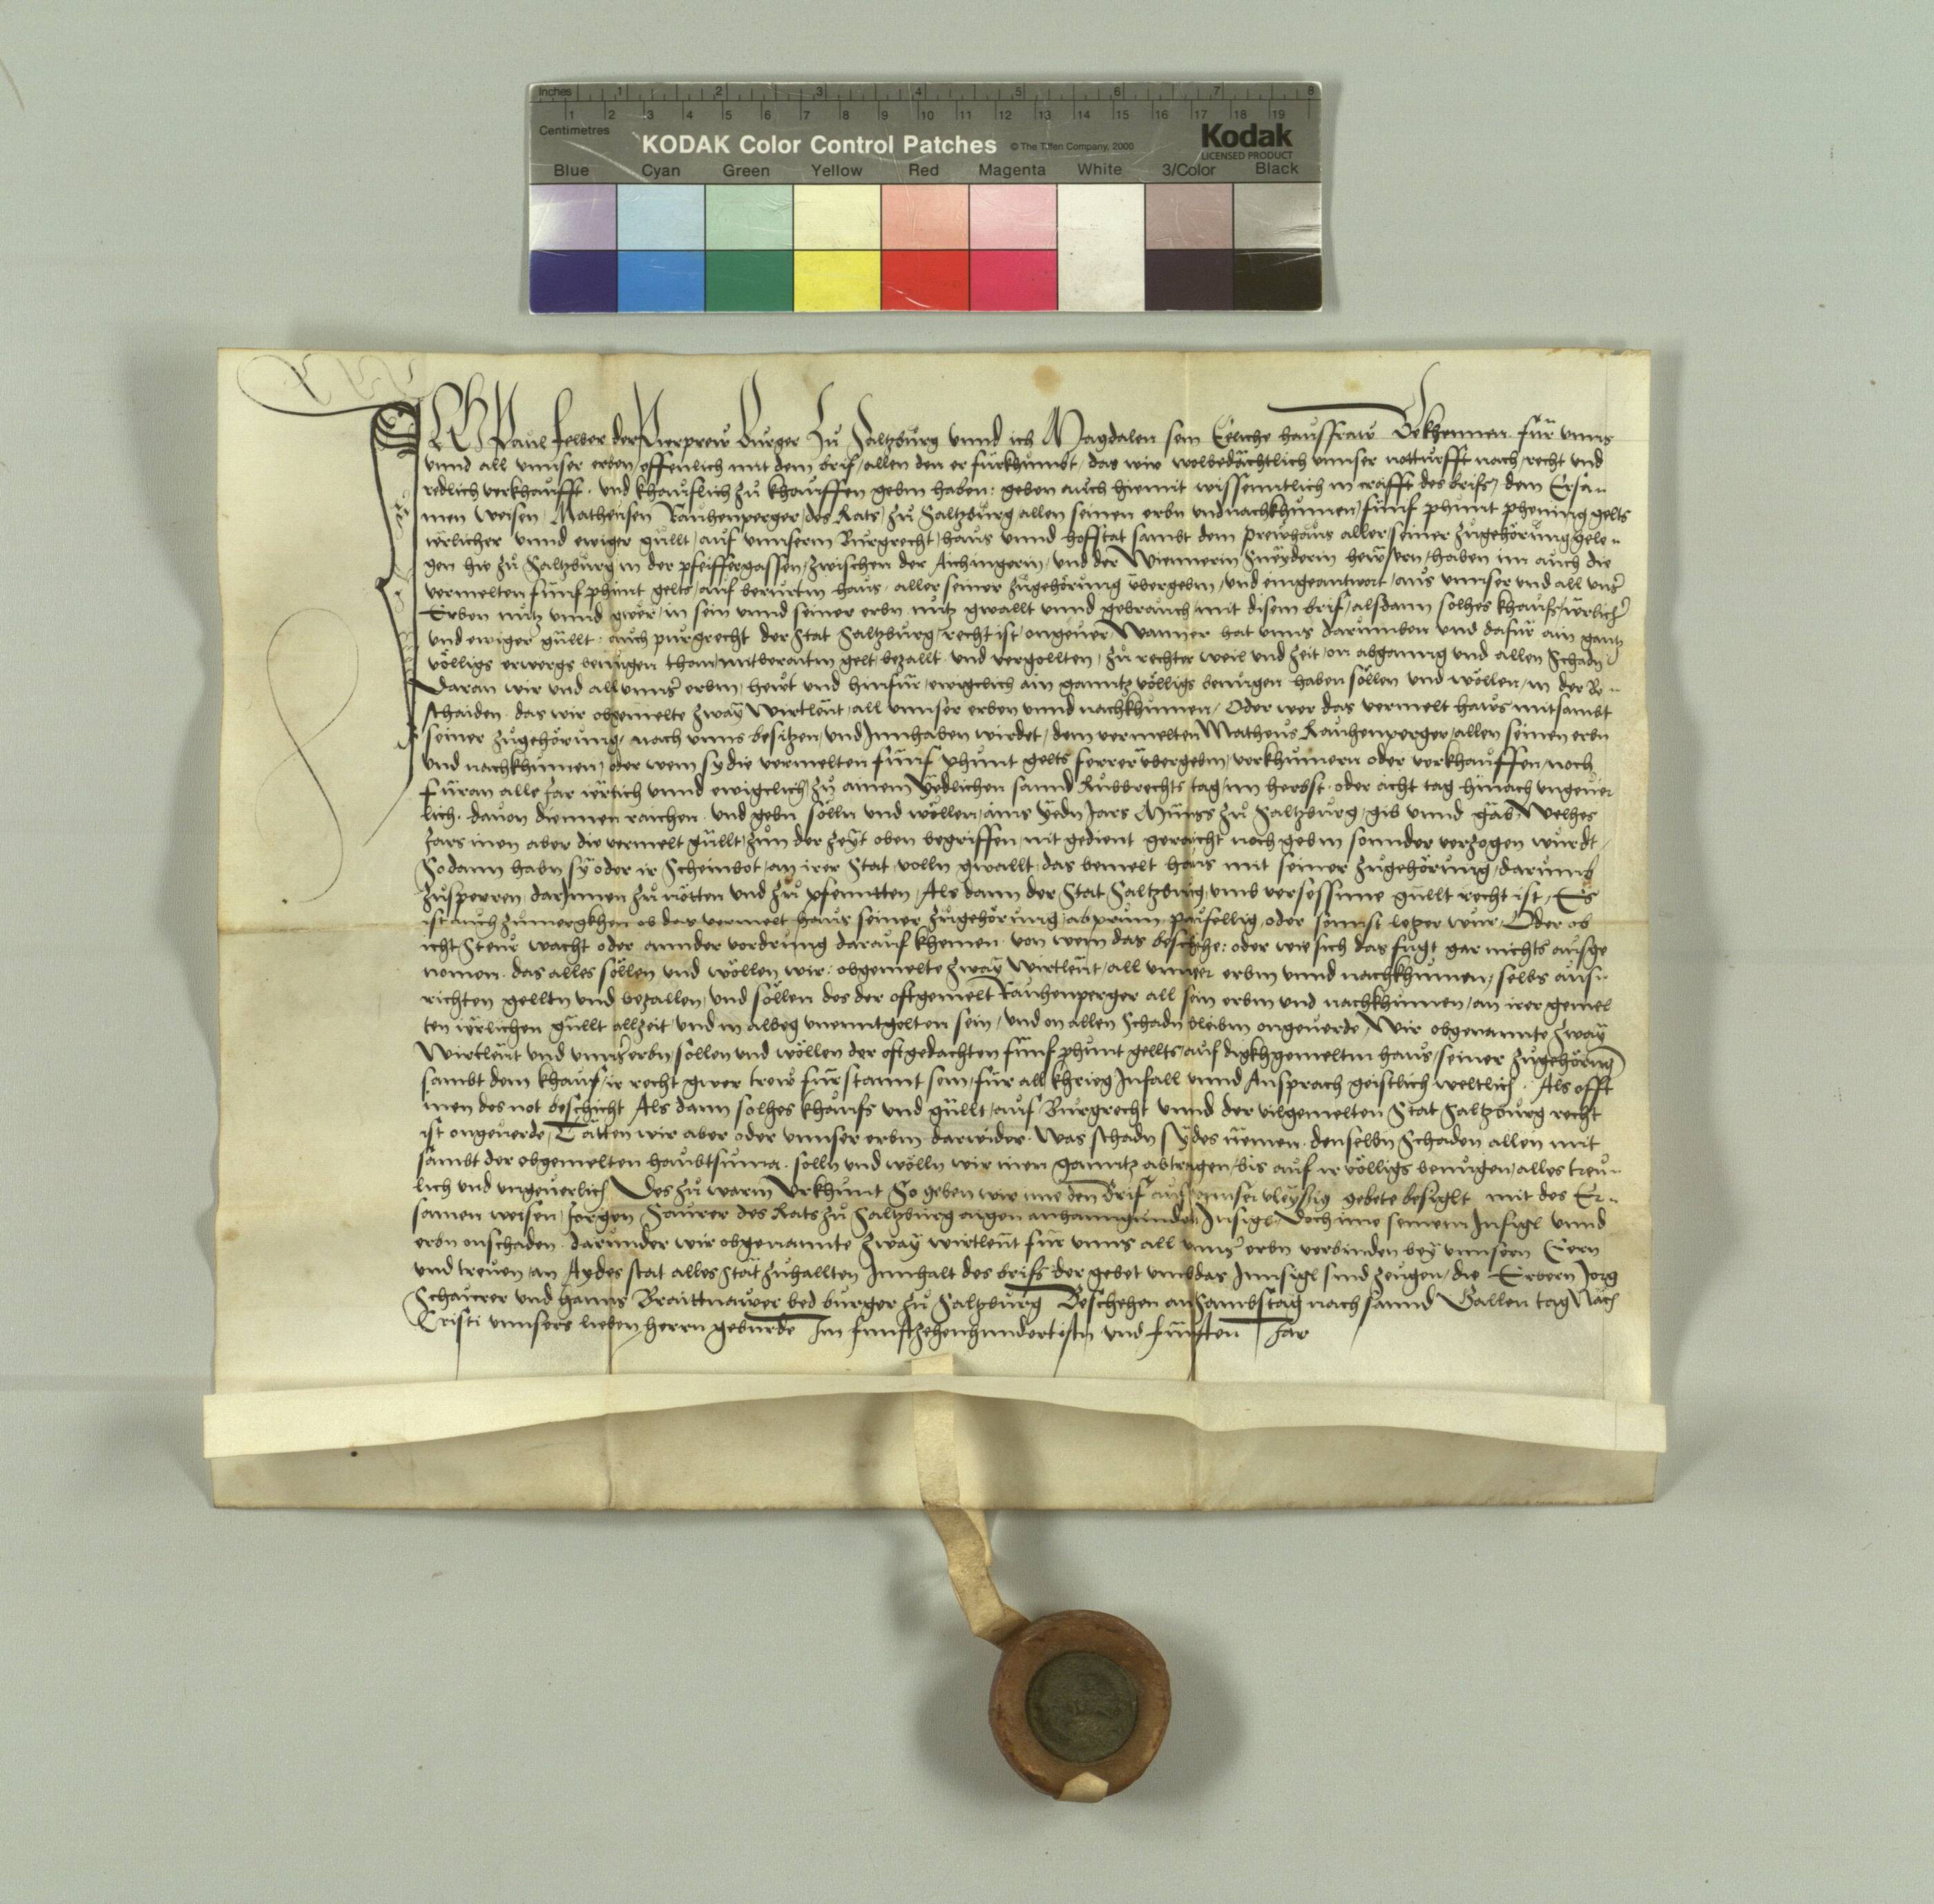 Inches 1 2 3 4 5 6 7 8
1 2 3 4 5 6 7 8 9 10 11 12 13 14 15 16 17 18 19
Centimetres
KODAK Color Control Patches © The Tiffen Company, 2000 Kodak
LICENSED PRODUCT
Blue Cyan Green Yellow Red Magenta White 3/Color Black
ICH Paul felber der Pierprew Burger Zů Saltzburg vnnd ich Magdalen sein Eeliche haussfraw Bekhennen für vnns
vnnd all vnnser erben offenlich mit dem brif allen den er fürkhumbt, das wir wolbedächtlich vnnser notturfft nach recht vnd
redlich verkhaufft vnd kheuflich zů khauffen gebm haben: geben auch hiemit wissenntlich in crafft des brifs dem Ersa-
men Weisen Matheusen Rauhenperger des Rats zů Saltzburg allen seinen erbn vnd nachkhumen fünf phunt phening gelts
iërlicher vnnd ewiger güllt auf vnnserm Burgrecht haus vnnd hofstat sambt dem prewhaus aller seiner zůgehörung gele-
gen hie zů Saltzburg in der pfeiffergassen zwischen der Aichingerin vnd der Wiennerin Sneyderin hewsern haben im auch die
vermelten fünf phunt gelts auf berurtm haus aller seiner zůgehörung vbergebm vnd eingeantwort aus vnnser vnd all vnnser
Erben nutz vnnd gwer in sein vnnd seiner erbn nutz gwallt vnnd gebrauch mit disem brif alsdann solhes khaufs iërlicher
vnd ewiger güllt auch purgrecht der Stat Saltzburg recht ist ongeuer Wanner hat vnns darumben vnd dafur ain gantz
völligs erwergs benůgen than mit beraitm gelt bezallt vnd vergollten zů rechter weil vnd zeit on abganng vnd allen Schadn
Daran wir vnd all vnnser erbm hewt vnd hinfür ewigclich ain ganntz völligs benůgen haben söllen vnd wöllen in der Be-
schaiden das wir obgemelte zway Wirtleüt all vnnser erben vnnd nachkhumen Oder wer das vermelt haws mitsambt
seiner zůgehörung nach vnns besitzen vnd Innhaben wirdet dem vermelten Matheus Rauhenperger allen seinen erbn
vnd nachkhumen oder wem sy die vermelten fünf phunt gelts ferrer vbergebm verkhumern oder verkhauffen noch
füran alle Jar iërlich vnnd ewigclich zů ainem yedlichen sannd Rudbrechts tag im herbst oder acht tag hinach vngeuer
lich dauon diennen raichen vnd gebn solln vnd wöllen ains yedn Jars Münss zů Saltzburg gib vnnd gäb Welhes
Jars inen aber die vermelt güllt zům der zeyt oben begriffen nit gedient geraicht noch gebm sonnder verzogen würdt
Sodann habn sy oder ir Scheinbot an irer Stat volln gwallt das bemelt haus mit seiner zůgehörung darumb
zůsperren darInnen zů nötten vnd zů pfenntten Als dann der Stat Saltzburg vmb versessine güllt recht ist Es
ist auch zůmergkhen ob das vermelt haus seiner zůgehörung abprunn paufellig oder sonnst letzer wur Oder ob
icht Steur wacht oder annder vordrung darauf khemen von wem das beschehe: oder wie sich das fugt gar nichts ausge
nomen das alles söllen vnd wöllen wir obgemelte zway Wirtleüt all vnnser erbm vnnd nachkhumen selbs aus-
richten gelltn vnd bezallen vnd söllen des der oftgemelt Rauhenperger all sein erbm vnd nachkhumen an irer gemel
ten iërlichen güllt allzeit vnd in albeg vnenntgolten sein vnd on allen Schadn bleibm ongeuerde Wir obgenannte zway
Wirtleüt vnd vnnser erbn söllen vnd wöllen der oftgedachten fünf phunt gellts auf digkhgemeltm haus seiner zůgehörung
sambt dem khauf ir recht gwer trew fürstannt sein für all khrieg Infall vnnd Ansprach geistlich weltlich Als offt
inen des not beschicht Als dann solhes khaufs vnd güllt auf Burgrecht vnnd der vilgemelten Stat Saltzburg recht
ist ongeuerde Tätten wir aber oder vnnser erbm darwider Was schadn sy des nemen denselbn Schaden allen mit
sambt der obgemelten haubtsuma solln vnd wölln wir inen ganntz abtragen bis auf ir völligs benůgen alles treu-
lich vnd vngeuerlich Des zů warm Vrkhunt So geben wir ime den Brif auf vnnser vleyssig gebete besiglt mit des Er-
samen weisen Jorgen Saurer des Rats zů Saltzburg aigen anhanngunden Insigl Doch ime seinem Insigl vnnd
erbn onschaden darunder wir obgenannte zway wirtleüt für vnns all vnnser erbn verbinden bey vnnsern Eern
vnd treuen an Aydes stat alles stät zůhallten Innhalt des brifs der gebet vmb das Innsigl sind zeugen die Erbern Jorg
Schaurer vnd Hanns Braittnawer bed burger zů Saltzburg Beschehen an Sambstag nach sannd Gallen tag Nach
Cristi vnnsers lieben herrn geburde Im funftzehenhundertistn vnd fünften Jar